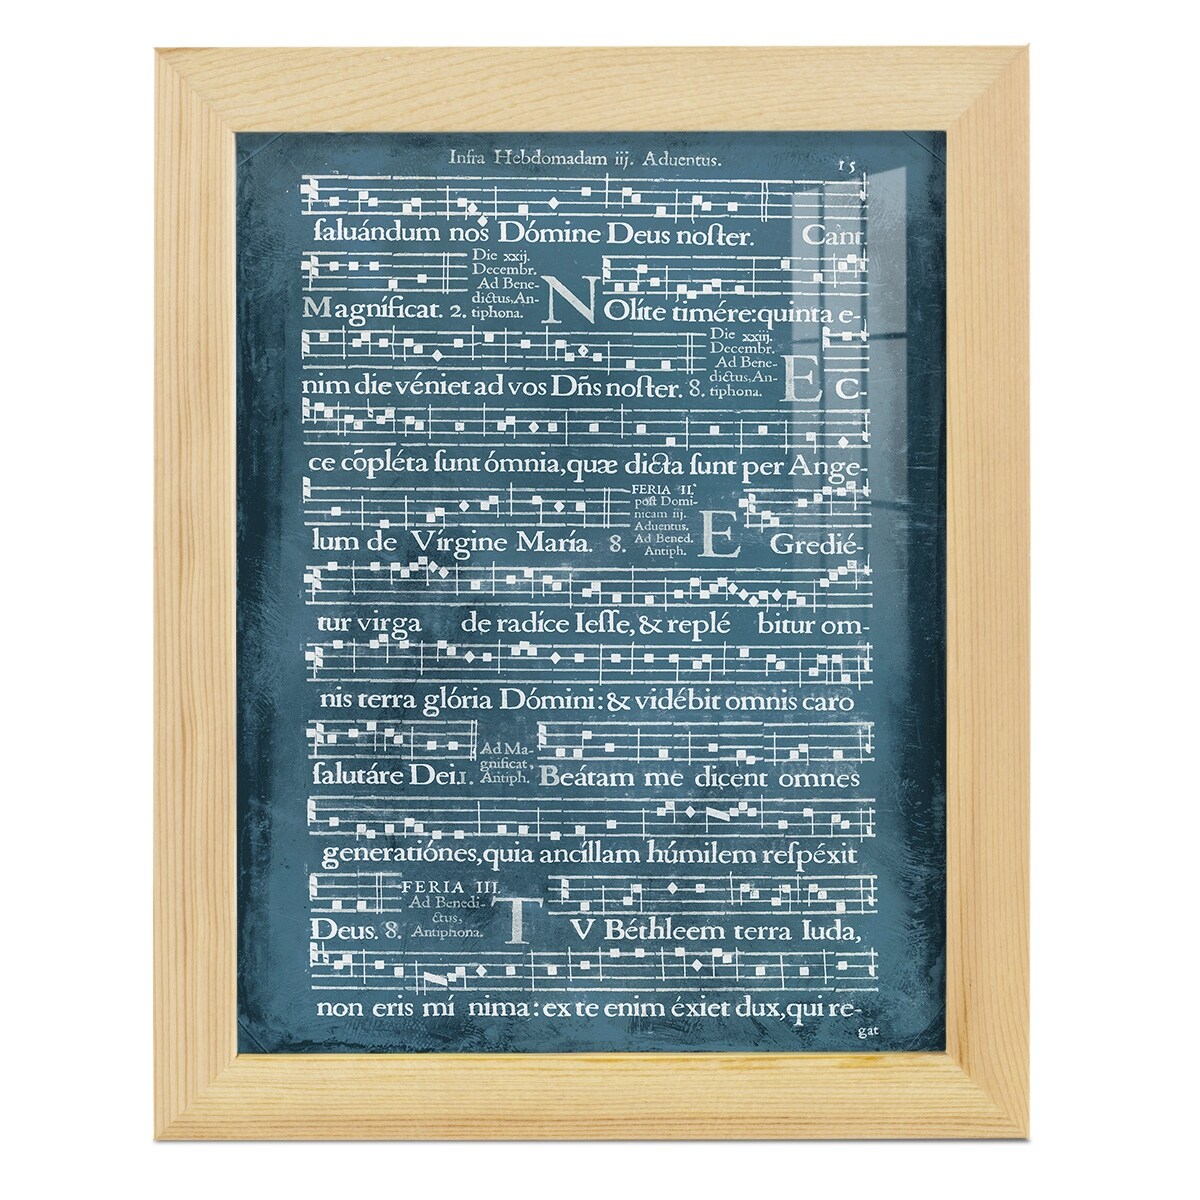 Infra Hebdomadam iij. Aduentus. 15
ſaluándum nos Dómine Deus noſter. Cant.
Die xxij.
Decembr.
Ad Bene-
dictus, An-
tiphona.
Magníficat. 2. NOlíte timére: quinta e-
Die xxiij.
Decembr.
Ad Bene-
dictus, An-
tiphona.
nim die véniet ad vos Dñs noſter. 8. EC-
ce cõpléta ſunt ómnia, quæ dicta ſunt per Ange-
FERIA II.
poſt Domi-
nicam iij.
Aduentus.
Ad Bened.
Antiph.
lum de Vírgine María. 8. EGredié-
tur virga de radíce Ieſſe, & replé bitur om-
nis terra glória Dómini: & vidébit omnis caro
Ad Ma-
gnificat,
Antiph.
ſalutáre Dei. 1. Beátam me dicent omnes
generatiónes, quia ancíllam húmilem reſpéxit
FERIA III.
Ad Benedi-
ctus,
Antiphona.
Deus. 8. TV Béthleem terra Iuda,
non eris mí nima: ex te enim éxiet dux, qui re-
gat